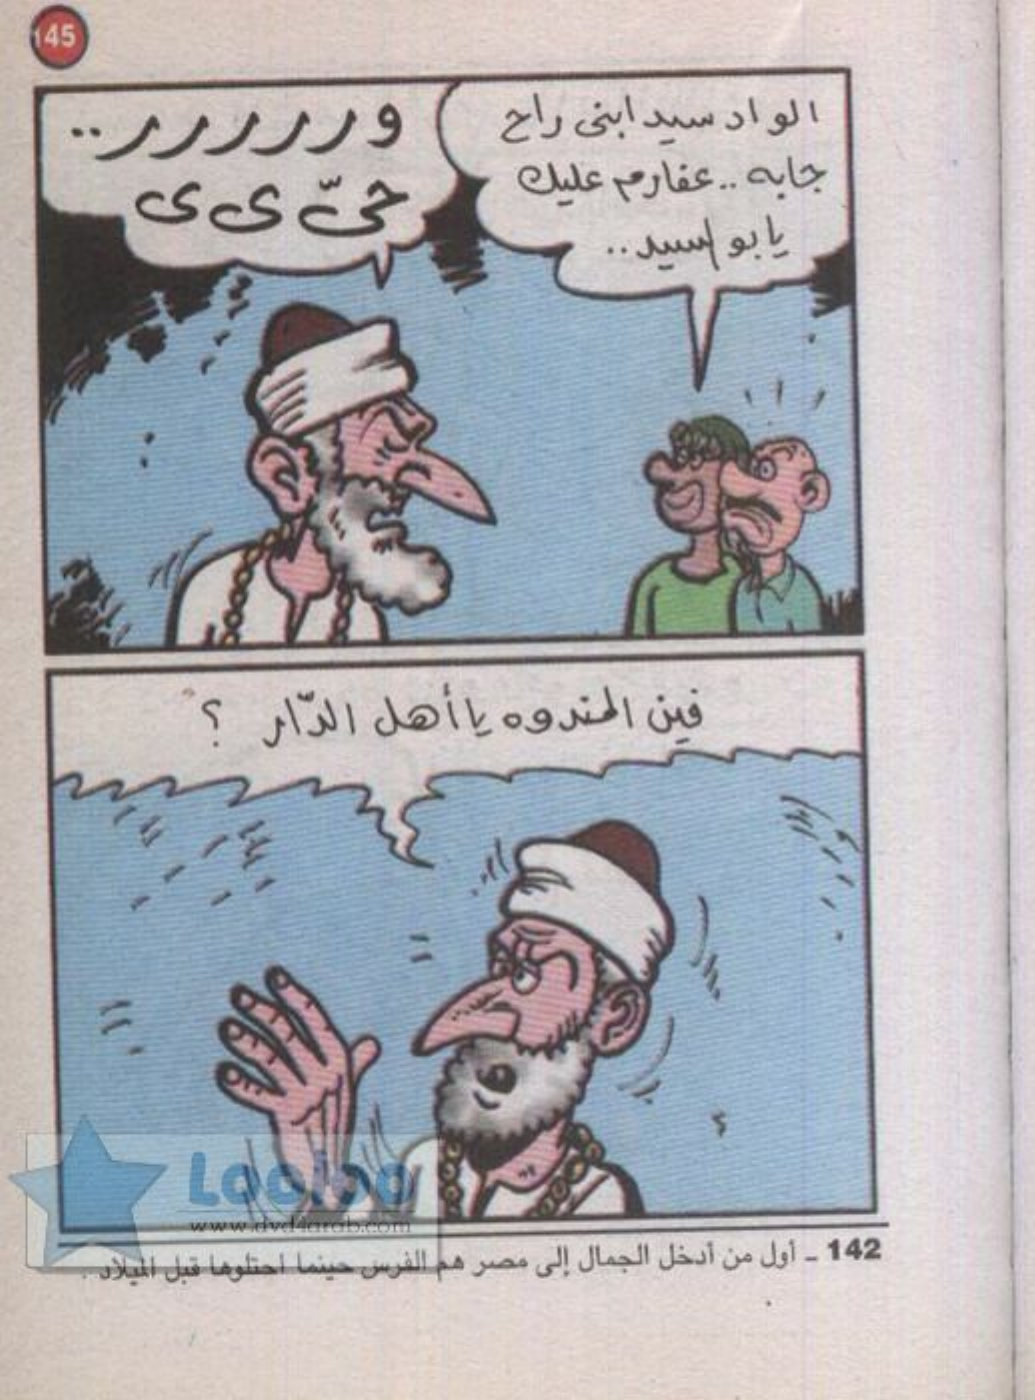 145
الواد سيد ابنى راح
جابه .. عفارم عليك
يا بو السيد ..
وررررر ..
حىّ ى ى
فين المندوه يا أهل الدّار ؟
Looloo
www.dvd4arab.com
142 ـ أول من أدخل الجمال إلى مصر هم الفرس حينما احتلوها قبل الميلاد .